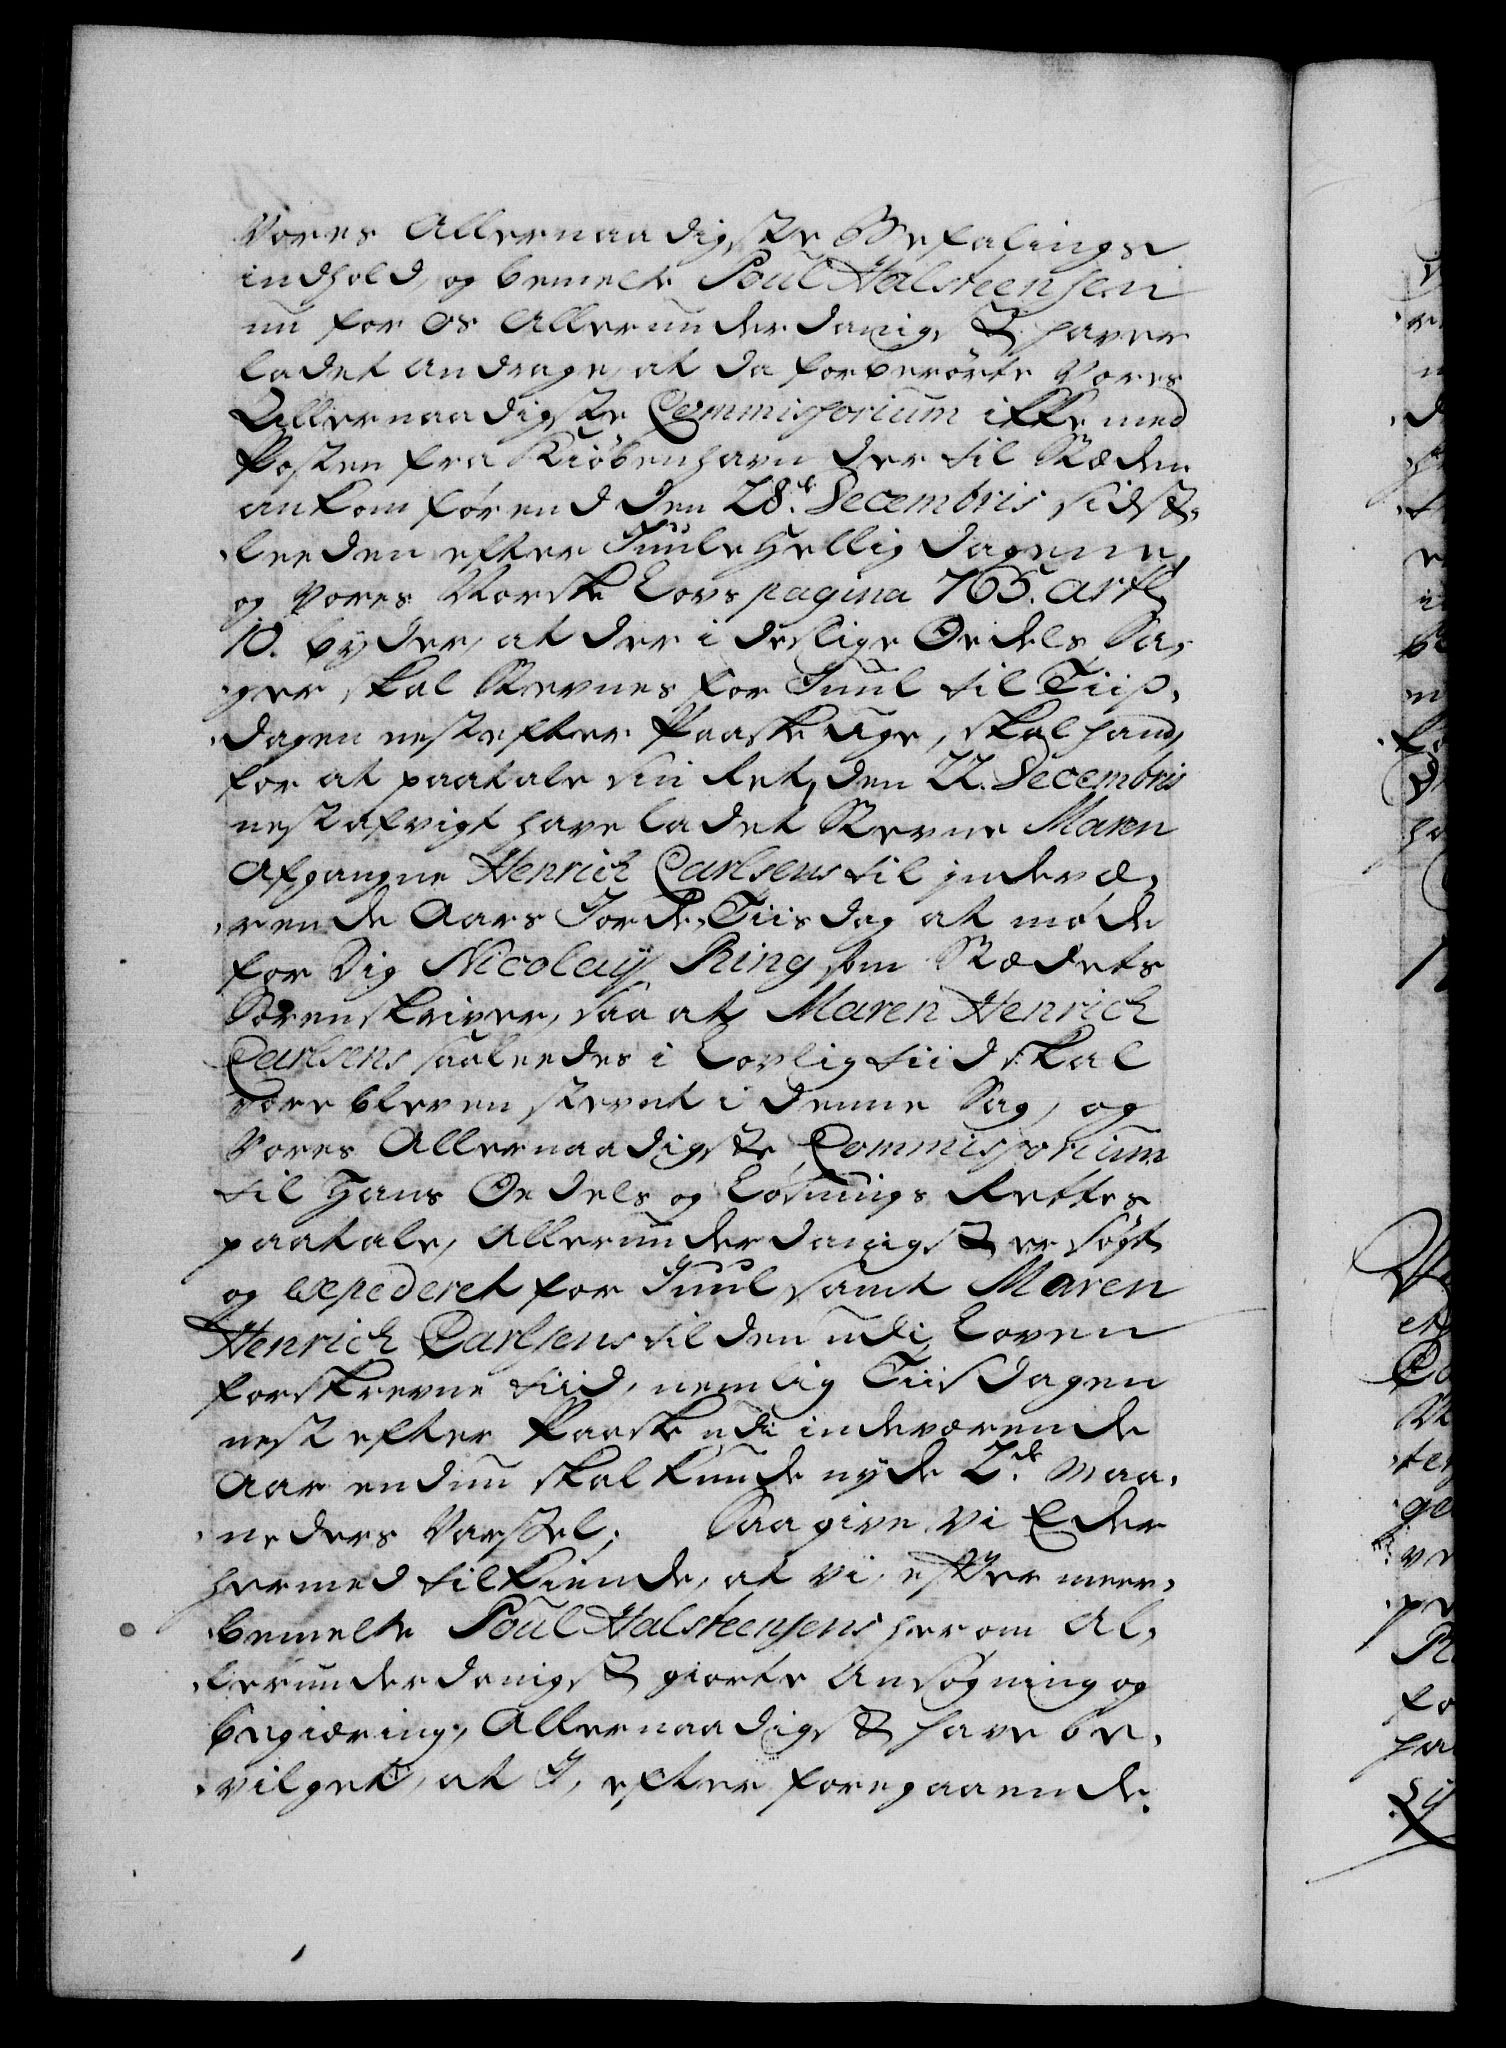 Vores Allernaadigste Befalings
indhold, og bemelte Poul Halsteensen
nu for Os Allerunderdanigst haver
ladet andrage, at da forberørte Vores
Allernaadigste Commissorium ikke med
Posten fra Kiøbenhavn der til Stæden
ankom førend den 28.de Decembris sidst-
leeden efter Juule Hellig dagene,
og Vores Norske Lovs pagina 765. artl
10. byder, at der i deslige Oedels Sa-
ger skal Stevnes for Juul til Tiis-
dagen nest efter Paaske Uge, skal hand,
for at paatale sin Ret, den 22. Decembris
nestafvigt have ladet Stevne Maren
Afgangne Henrich Carlsens til indevæ-
rende Aars Jorde-Tiisdag at møde
for Dig Nicolaÿ Ring som Stædets
Sorenskriver, saa at Maren Henrich
Carlsens saaleedes i Lovlig tiid skal
være bleven stevnt i denne Sag, og
Vores Allernaadigste Commissorium
til Hans Oedels og Løsnings Rettes
paatale, Allerunderdanigst er søgt
og expederet for Juul samt Maren
Henrich Carlsens til den udi Loven
forskrevne tiid, nemlig Tiisdagen
nest efter Paaske udi indeværende
Aar endnu skal kunde nyde 2.de Maa-
neders Varsel; Saa give Vi Eder
hermed tilkiende, at Vi, efter meer-
bemelte Poul Halsteensens herom Al-
lerunderdanigst giorte Ansøgning og
begiæring, Allernaadigst have be-
vilget, at I, efter foregaaende